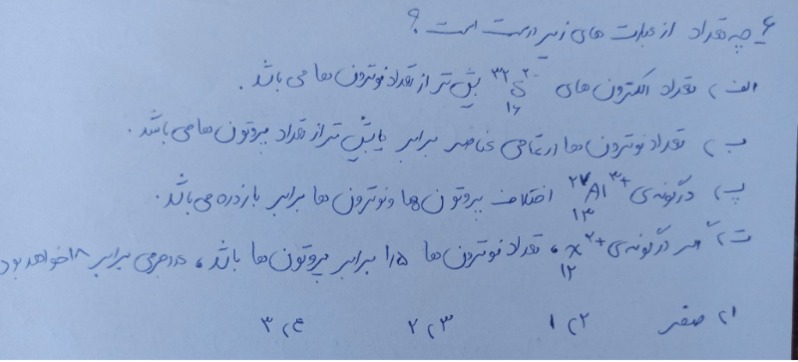 ۶- چه تعداد از عبارت های زیر درست است؟
الف) تعداد الکترون های ³²₁₆S²⁻ بیش تر از تعداد نوترون ها می باشد.
ب) تعداد نوترون ها در تمامی عناصر برابر یا بیش تر از تعداد پروتون ها می باشد.
پ) در گونه ی ²⁷₁₃Al³⁺ اختلاف پروتون ها و نوترون ها برابر بار ذره می باشد.
ت) اگر در گونه ی ₁₂X²⁺، تعداد نوترون ها ۱٫۵ برابر پروتون ها باشد، عدد جرمی برابر ۱۸ خواهد بود
۱) صفر ۲) ۱ ۳) ۲ ۴) ۳